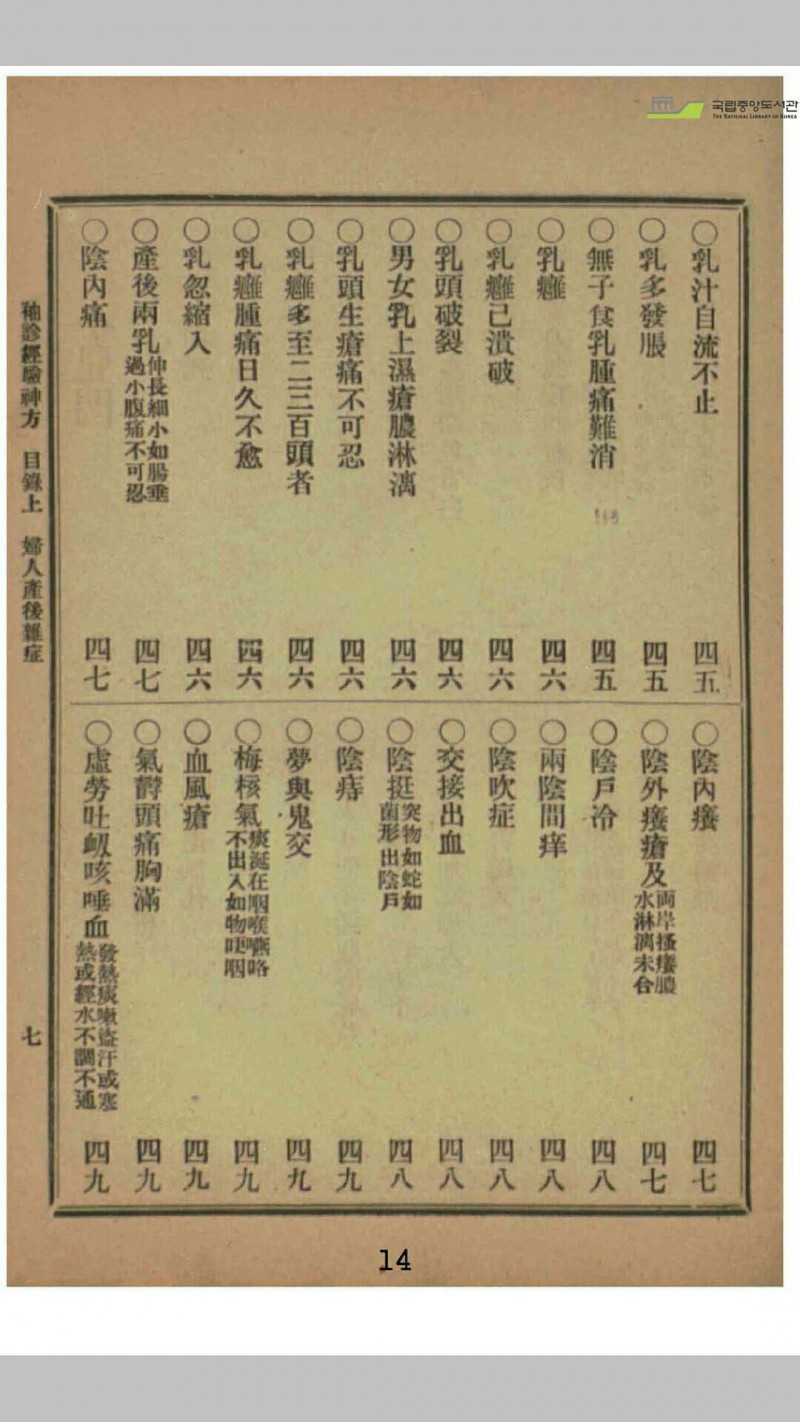 국립중앙도서관
THE NATIONAL LIBRARY OF KOREA
○乳汁自流不止 四五
○乳多發脹 四五
○無子食乳腫痛難消 四五
○乳癰 四六
○乳癰已潰破 四六
○乳頭破裂 四六
○男女乳上濕瘡膿淋漓 四六
○乳頭生瘡痛不可忍 四六
○乳癰多至二三百頭者 四六
○乳癰腫痛日久不愈 四六
○乳忽縮入 四六
○產後兩乳伸長細小如腸垂過小腹痛不可忍 四七
○陰內痛 四七
○陰內癢 四七
○陰外癢瘡及兩岸搔癢膿水淋漓未合 四七
○陰戶冷 四八
○兩陰間痒 四八
○陰吹症 四八
○交接出血 四八
○陰挺突物如蛇如菌形出陰戶 四八
○陰痔 四九
○夢與鬼交 四九
○梅核氣痰涎在咽喉嚥咯不出入如物哽咽 四九
○血風瘡 四九
○氣鬱頭痛胸滿 四九
○虛勞吐衂咳唾血發熱痰嗽盜汗或寒熱或經水不調不通 四九
袖診經驗神方 目錄上 婦人產後雜症 七
14